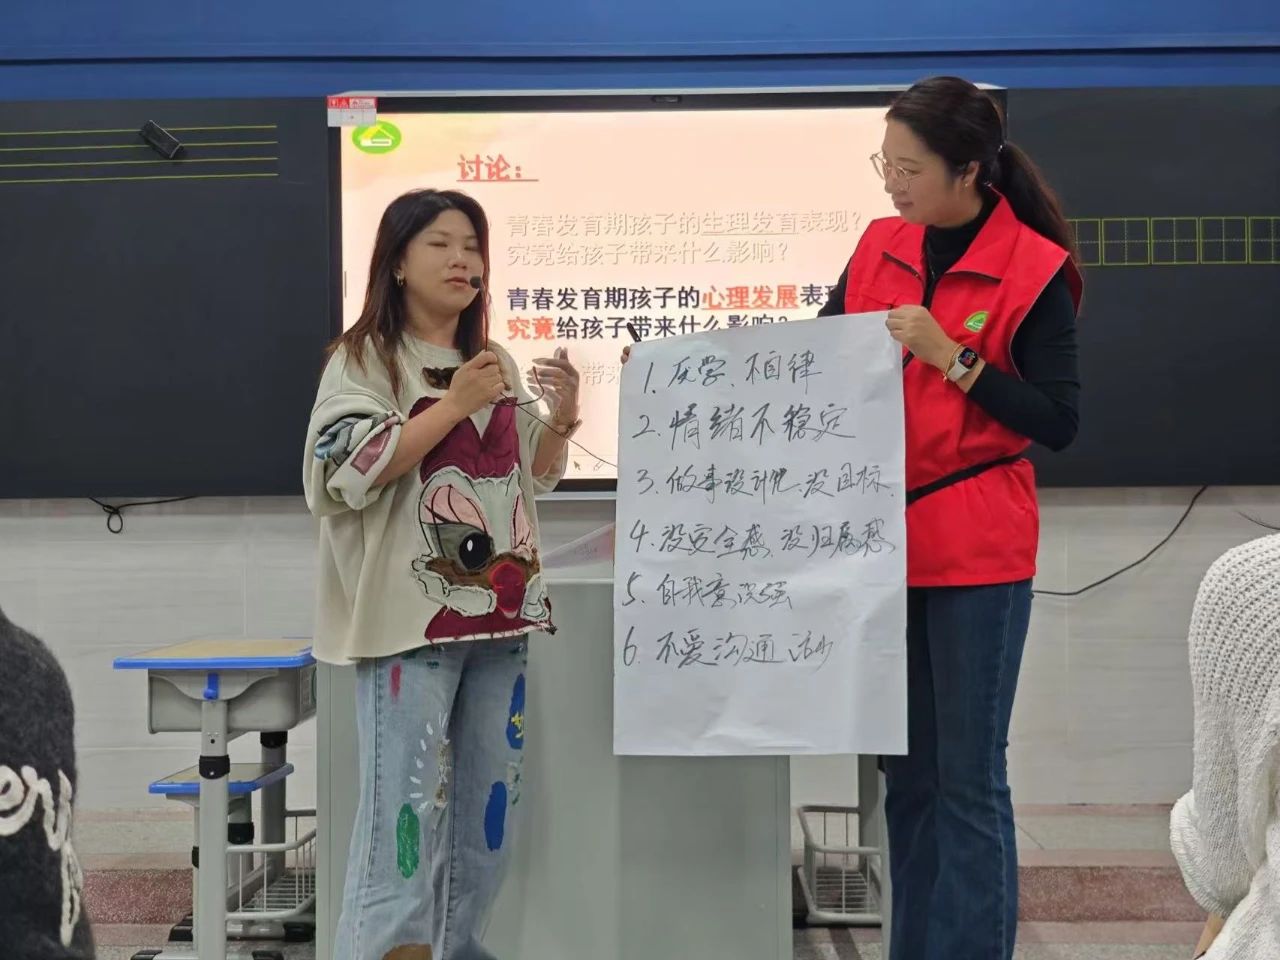 讨论：
青春发育期孩子的生理发育表现？
究竟给孩子带来什么影响？
青春发育期孩子的心理发展表现
究竟给孩子带来什么影响？
带来
1. 厌学、不自律
2. 情绪不稳定
3. 做事没计划、没目标.
4. 没安全感、没归属感
5. 自我意识强
6. 不爱沟通 活动